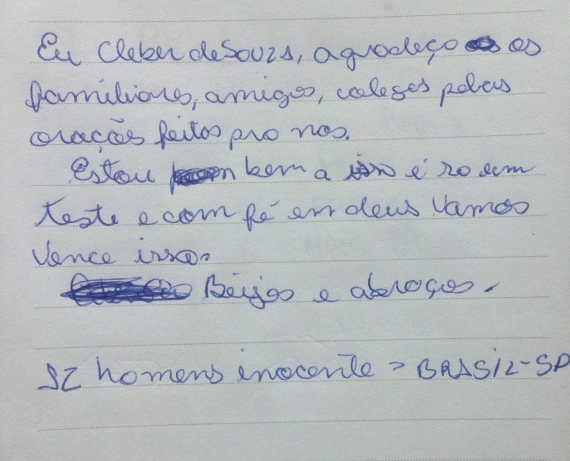 Eu Cleber de Souza, agradeço os
familiares, amigos, colegas pelas
orações feitas pro nos.
Estou bem a isso é so um
teste e com fé em deus vamos
vence isso.
Beijos e abraços.
homens inocente > BRASIL-SP